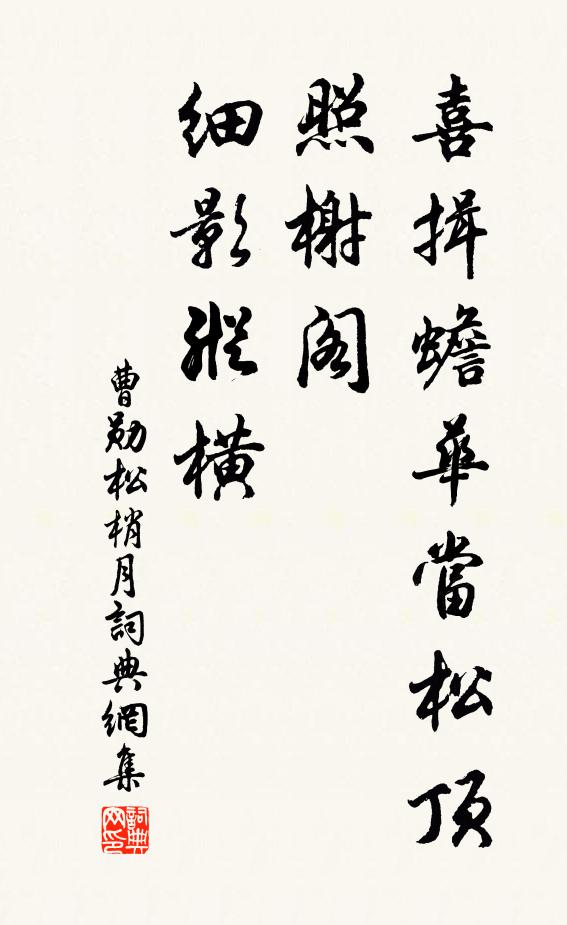 喜揖蟾華當松頂
照榭阁
細影縱橫
曹勛松梢月詞典網集
詞典网印